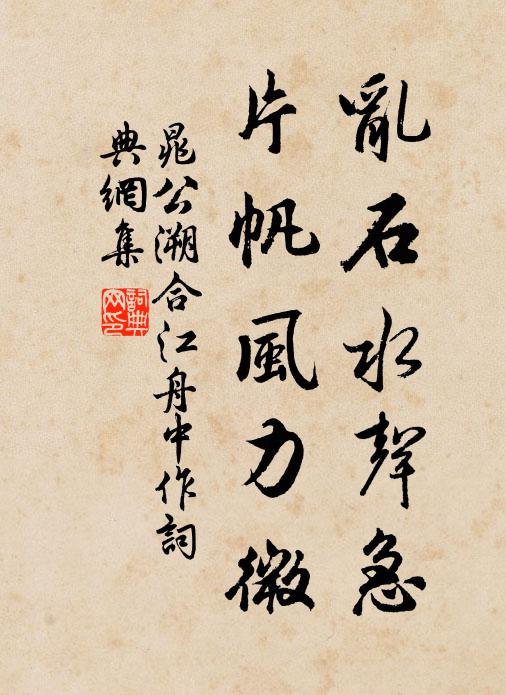 亂石水聲急
片帆風力微
晁公溯合江舟中作詞
典網集
詞典
网印